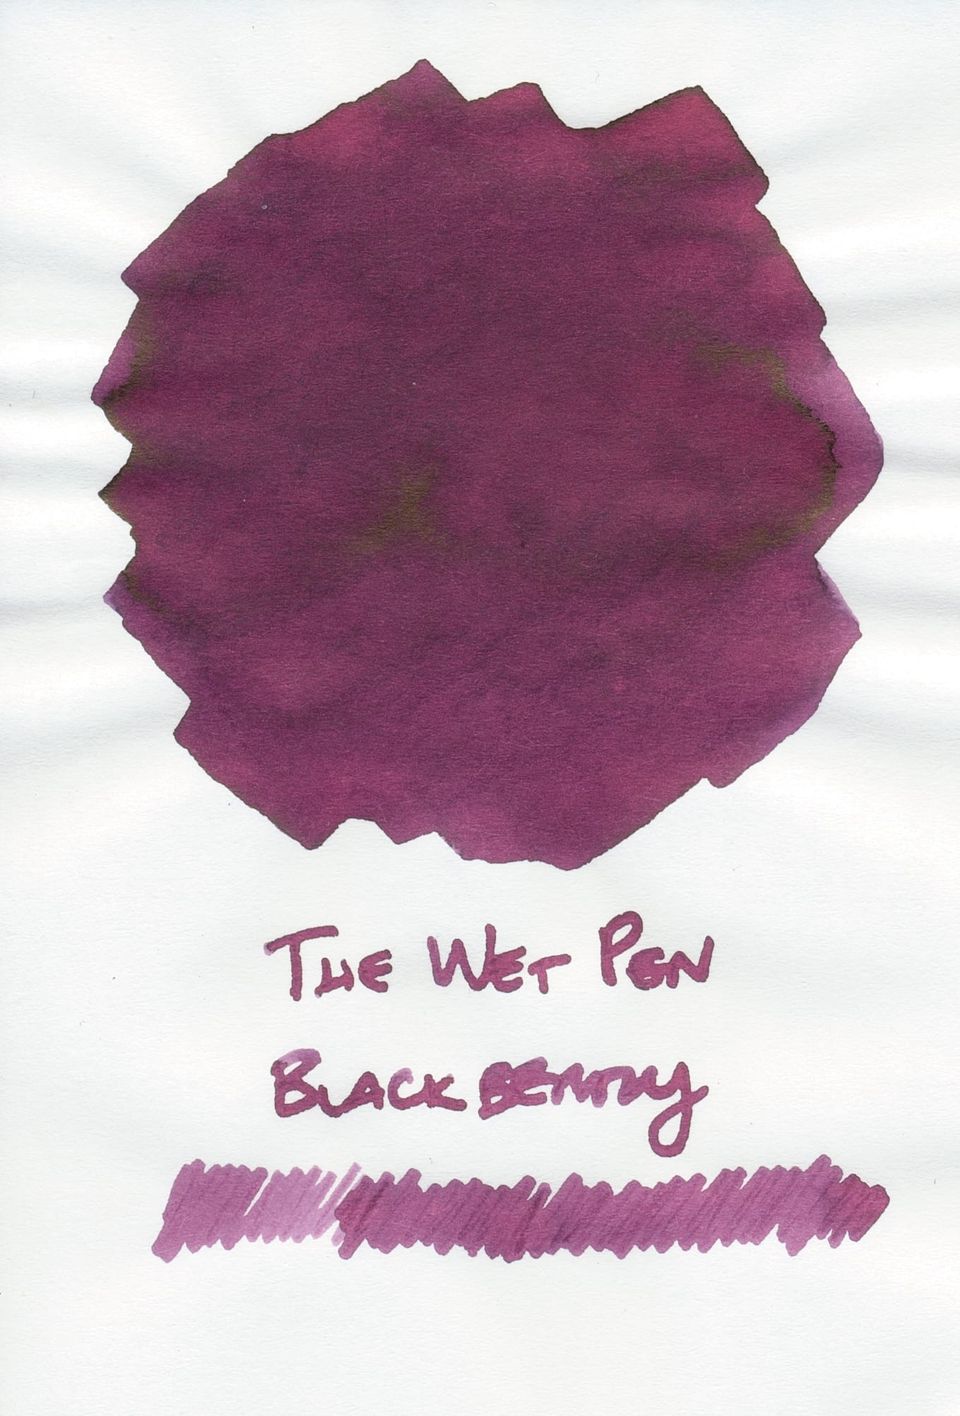 THE WET PEN
BLACKBERRY